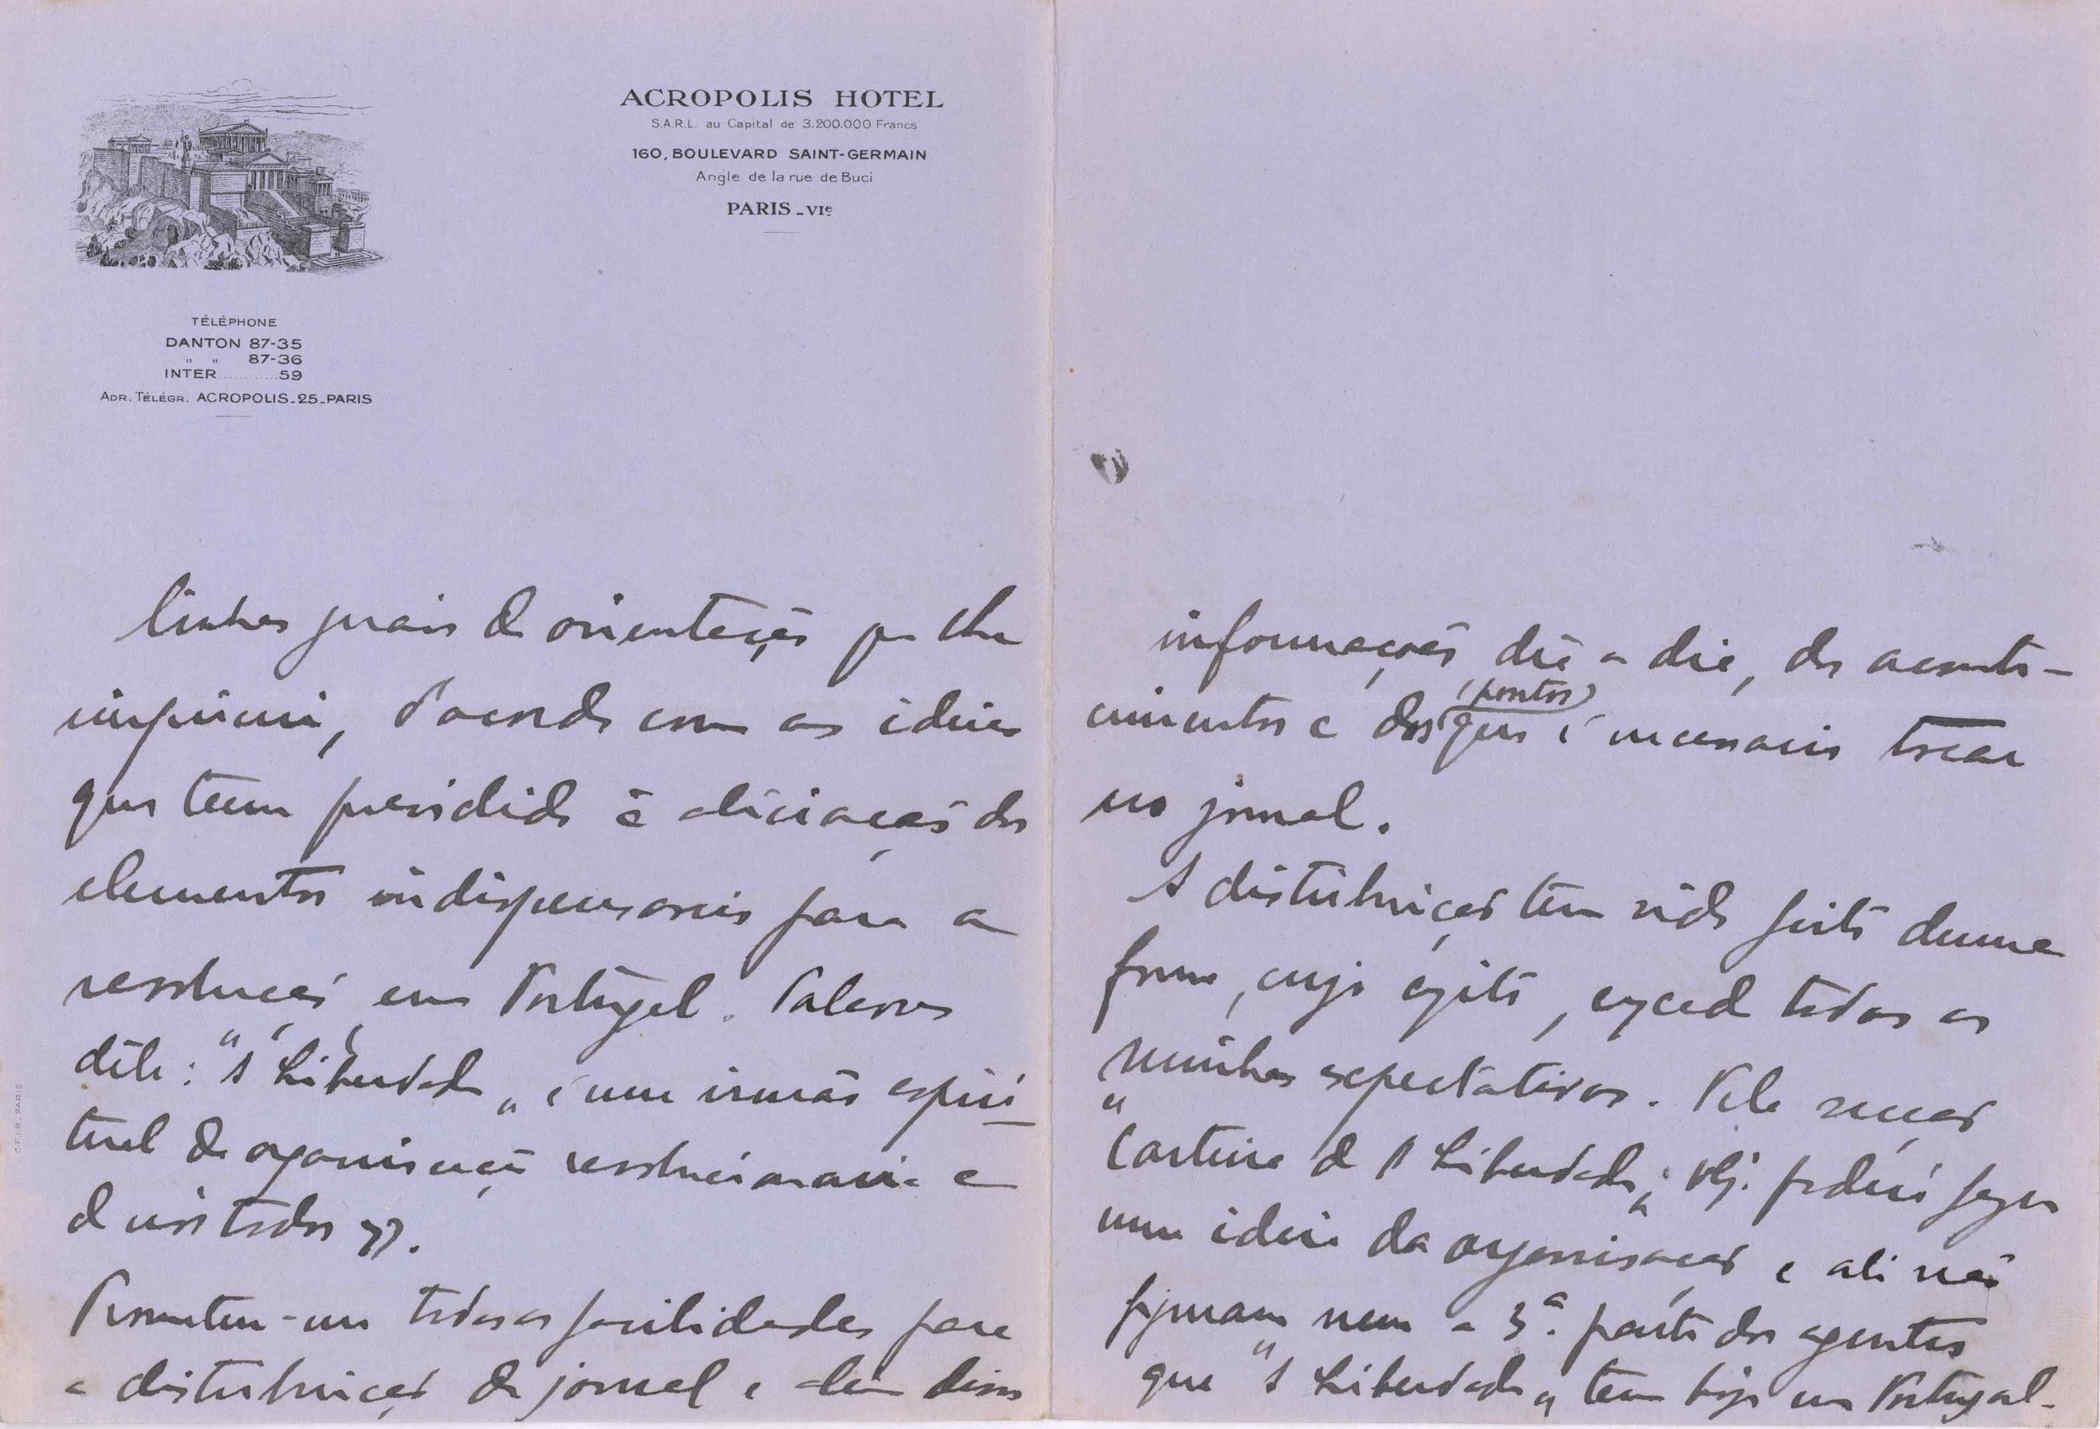 ACROPOLIS HOTEL
S.A.R.L. au Capital de 3.200.000 Francs
160, BOULEVARD SAINT-GERMAIN
Angle de la rue de Buci
PARIS - VIe
TÉLÉPHONE
DANTON 87-35
" " 87-36
INTER..........59
ADR. TÉLÉGR. ACROPOLIS-25-PARIS
linhas gerais de orientação que lhe
imprimi, d'acordo com as ideias
que teem presidido á aliciação dos
elementos indispensaveis para a
revolução em Portugal. Palavras
dêle: "A Liberdade" é um irmão espiri-
tual da organisação revolucionaria e
de nós todos".
Prometeu-me todas as facilidades para
a distribuição do jornal e alem disso
informações, dia a dia, dos aconte-
cimentos e dos (pontos) que é necessario tocar
no jornal.
A distribuição tem sido feita duma
forma, cujo exito, excede todas as
minhas expectativas. Pela secção
"Carteira de A Liberdade" V. poderá fazer
uma ideia da organisação e ali não
figuram nem a 3ª. parte dos agentes
que "A Liberdade" tem hoje em Portugal.